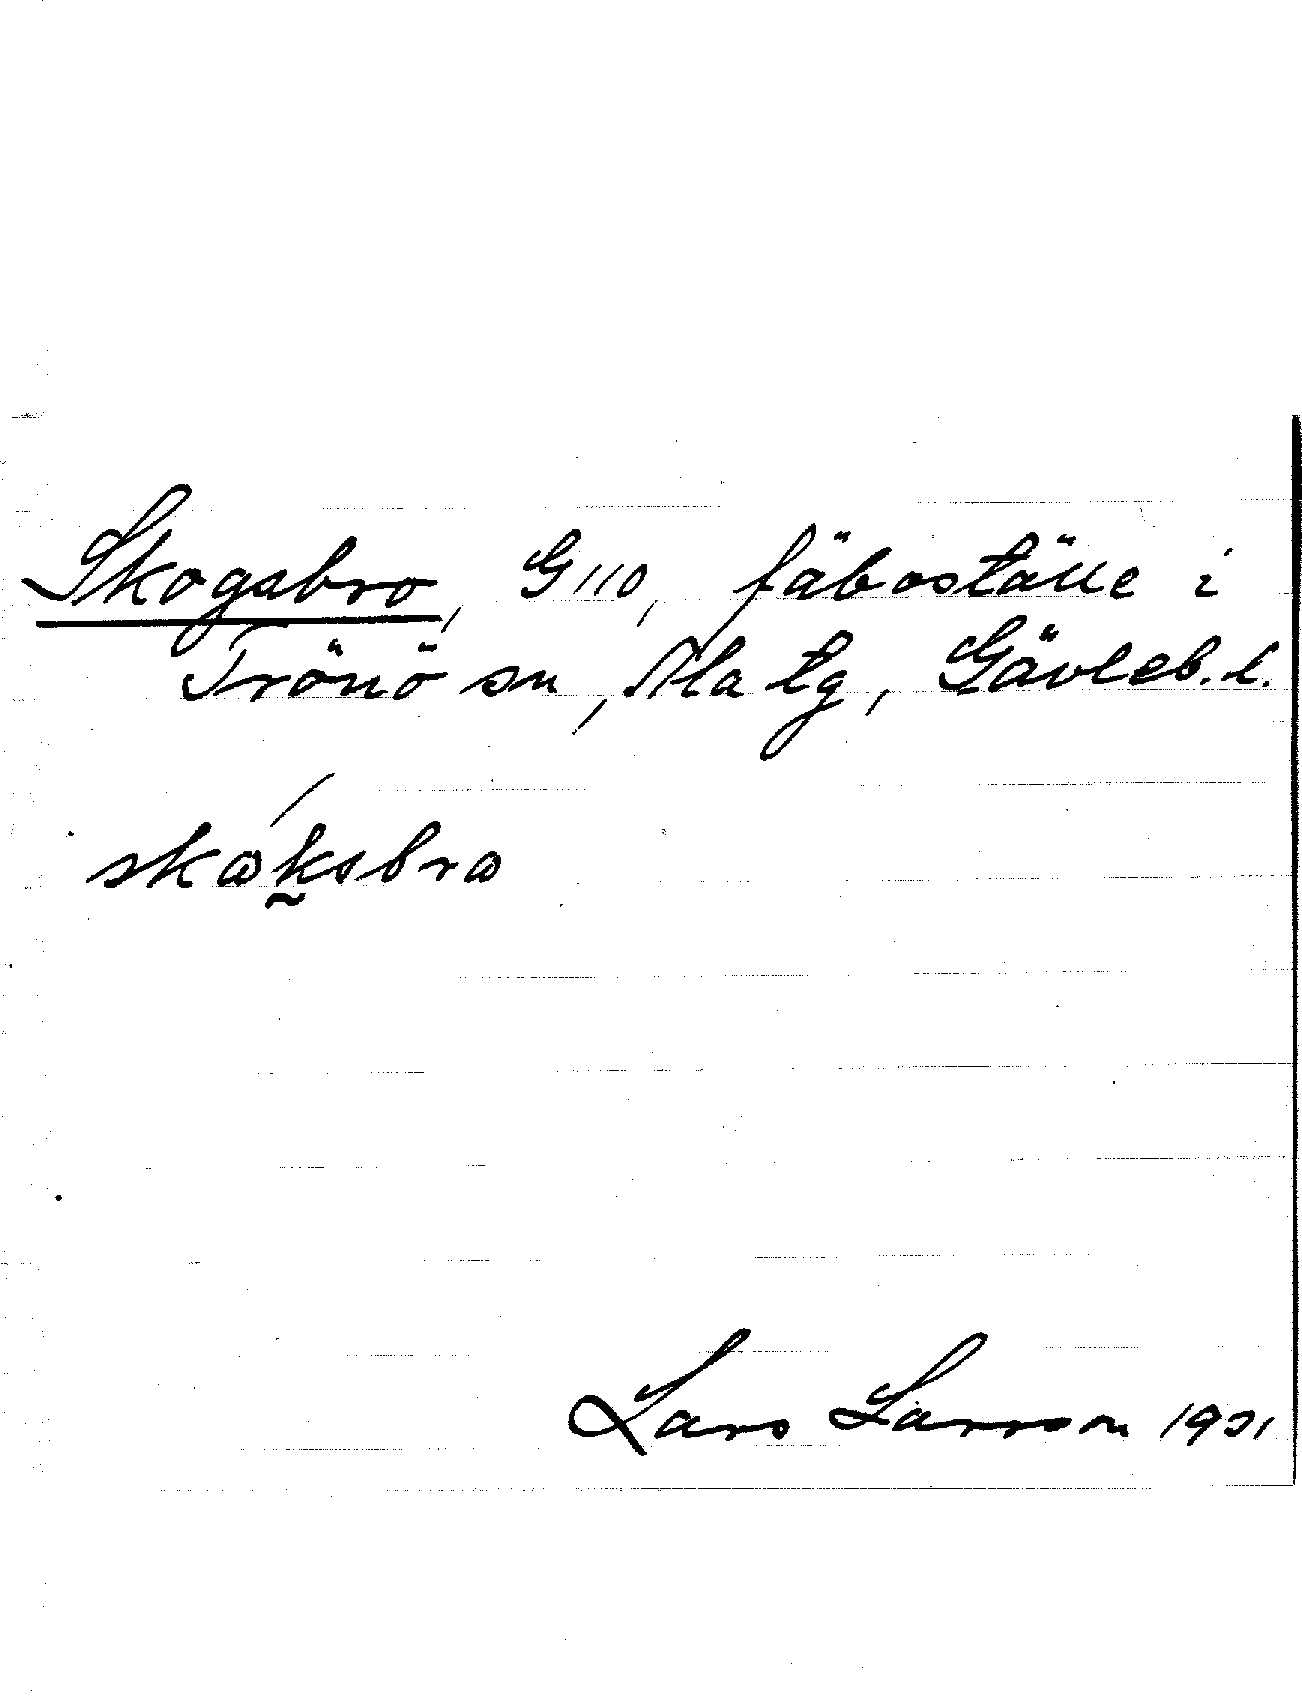 Skogsbro, G110, fäboställe i
Trönö sn, Ala tg, Gävleb. l.
skoksbro
Lars Larsson 1921